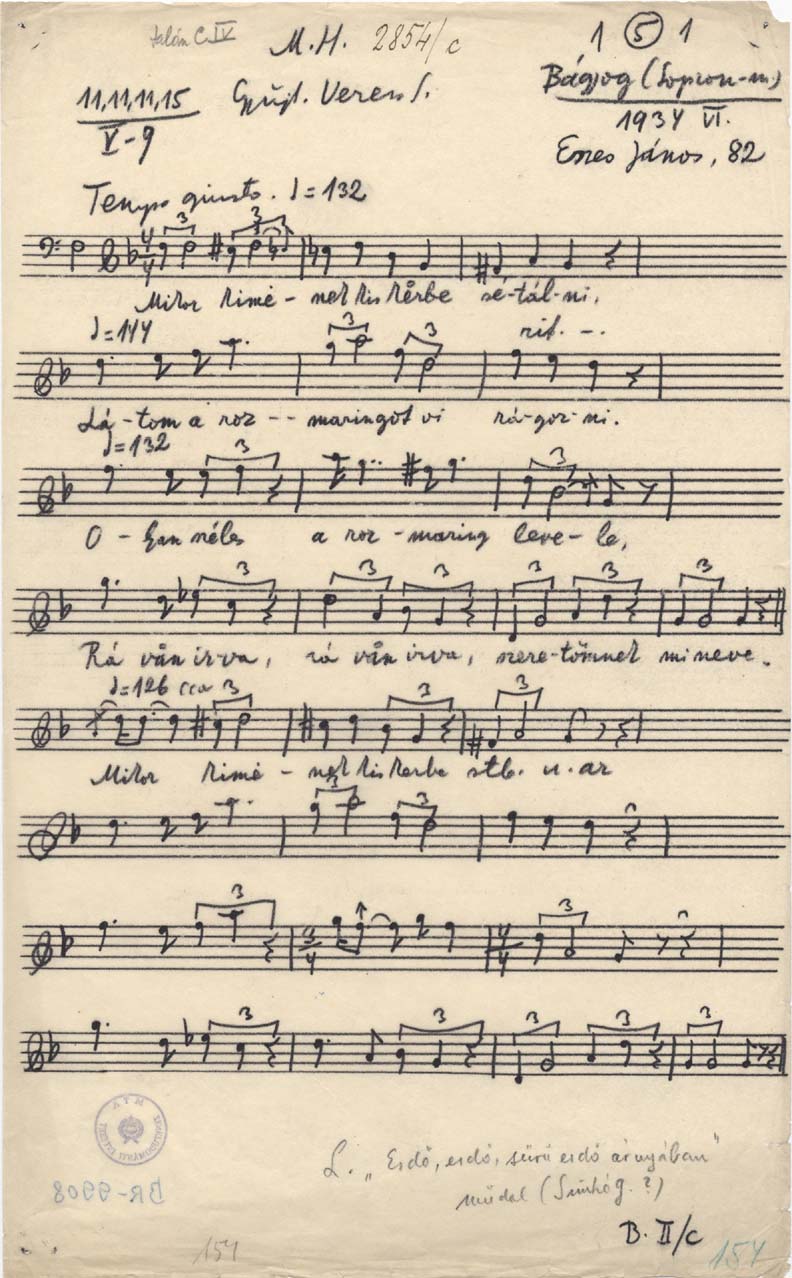 talán C.IV
M.H. 2854/c
1 5 1
11,11,11,15
V-9
Gyűjt. Veress S.
Bágyog (Sopron-m.)
1934 VI.
Tempo giusto. ♩=132
János, 82
Mikor kimė-nek kis kėrbe sé-tál-ni,
♩=144
rit. -.
Lá-tom a roz -- maringot vi rá-goz-ni.
♩=132
O-lyan széles a roz-maring leve-le,
Rá van ir-va, rá van irva, szere-tőmnek mi neve.
♩=126 cca
Mikor kimė-nek kis kerbe stb. u. az
BR-9908
L. „Erdő, erdő, sűrű erdő árnyában"
műdal (Szinhóg. ?)
B. II/c
154
154